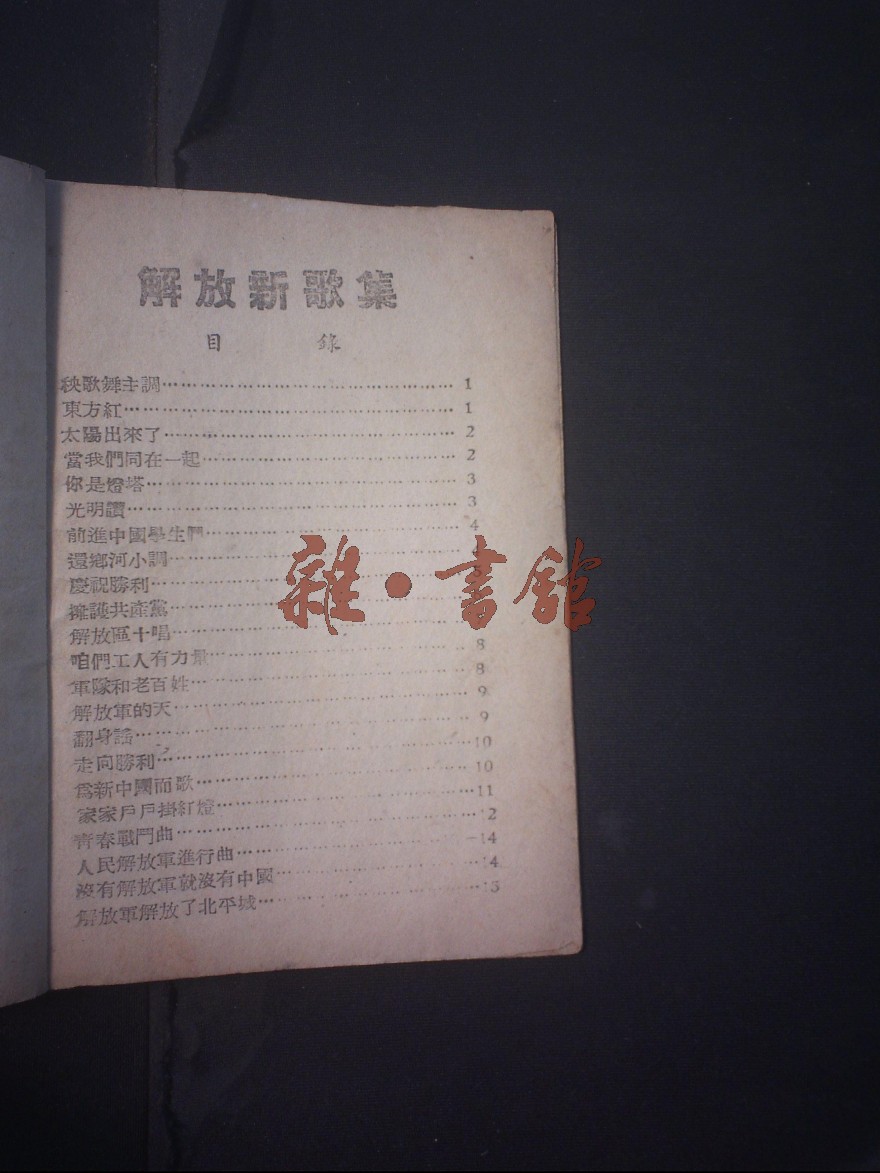 解放新歌集
目 錄
秧歌舞主調…………………………………………1
東方紅…………………………………………1
太陽出來了…………………………………………2
當我們同在一起…………………………………………2
你是燈塔…………………………………………3
光明讚…………………………………………3
前進中國學生們…………………………………………4
還鄉河小調…………………………………………
慶祝勝利…………………………………………5
擁護共產黨…………………………………………
解放區十唱…………………………………………
咱們工人有力量…………………………………………8
軍隊和老百姓…………………………………………8
解放軍的天…………………………………………9
翻身謠…………………………………………9
走向勝利…………………………………………10
爲新中國而歌…………………………………………10
家家戶戶掛紅燈…………………………………………11
青春戰鬥曲…………………………………………12
人民解放軍進行曲…………………………………………14
沒有解放軍就沒有中國…………………………………………14
解放軍解放了北平城…………………………………………15
雜·書館